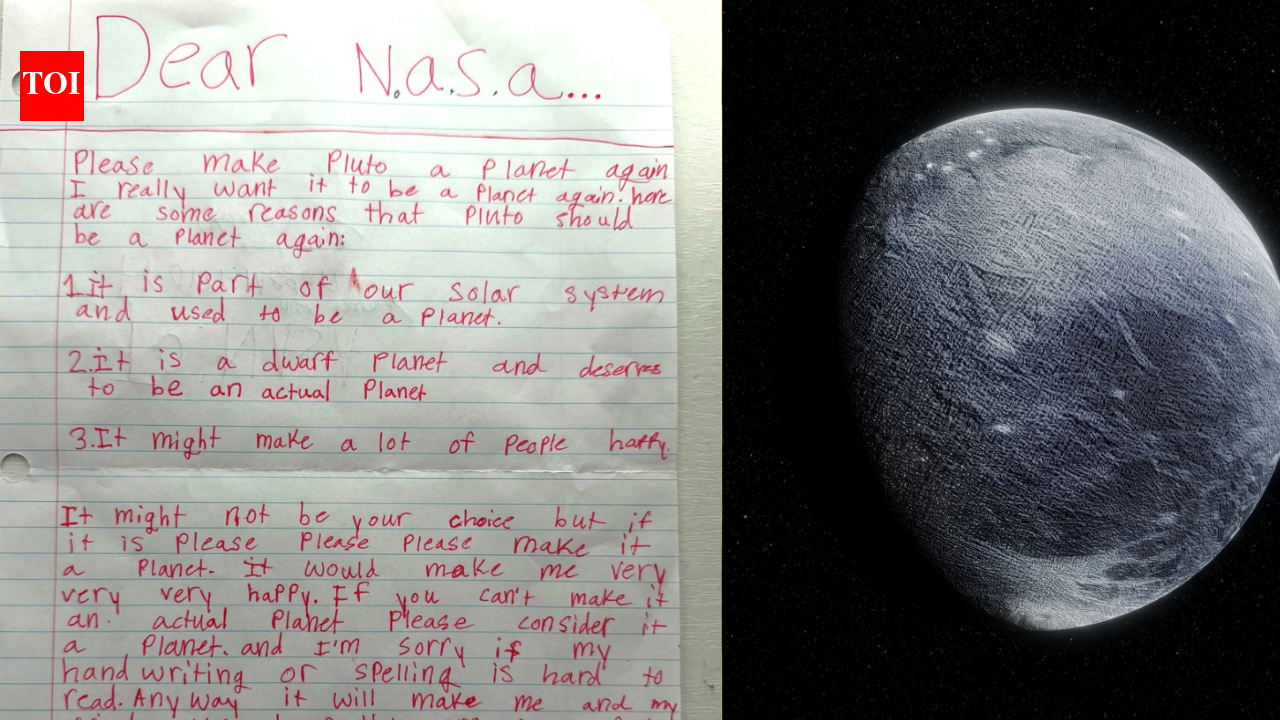 TOI
Dear N.a.s.a...
Please make Pluto a planet again
I really want it to be a planet again. here
are some reasons that Pluto should
be a planet again:
1.it is part of our solar system
and used to be a planet.
2.it is a dwarf planet and deserves
to be an actual planet
3.It might make a lot of people happy.
It might not be your choice but if
it is please please please make it
a planet. it would make me very
very very happy. If you can't make it
an actual planet please consider it
a planet. and I'm sorry if my
hand writing or spelling is hard to
read. Any way it will make me and my